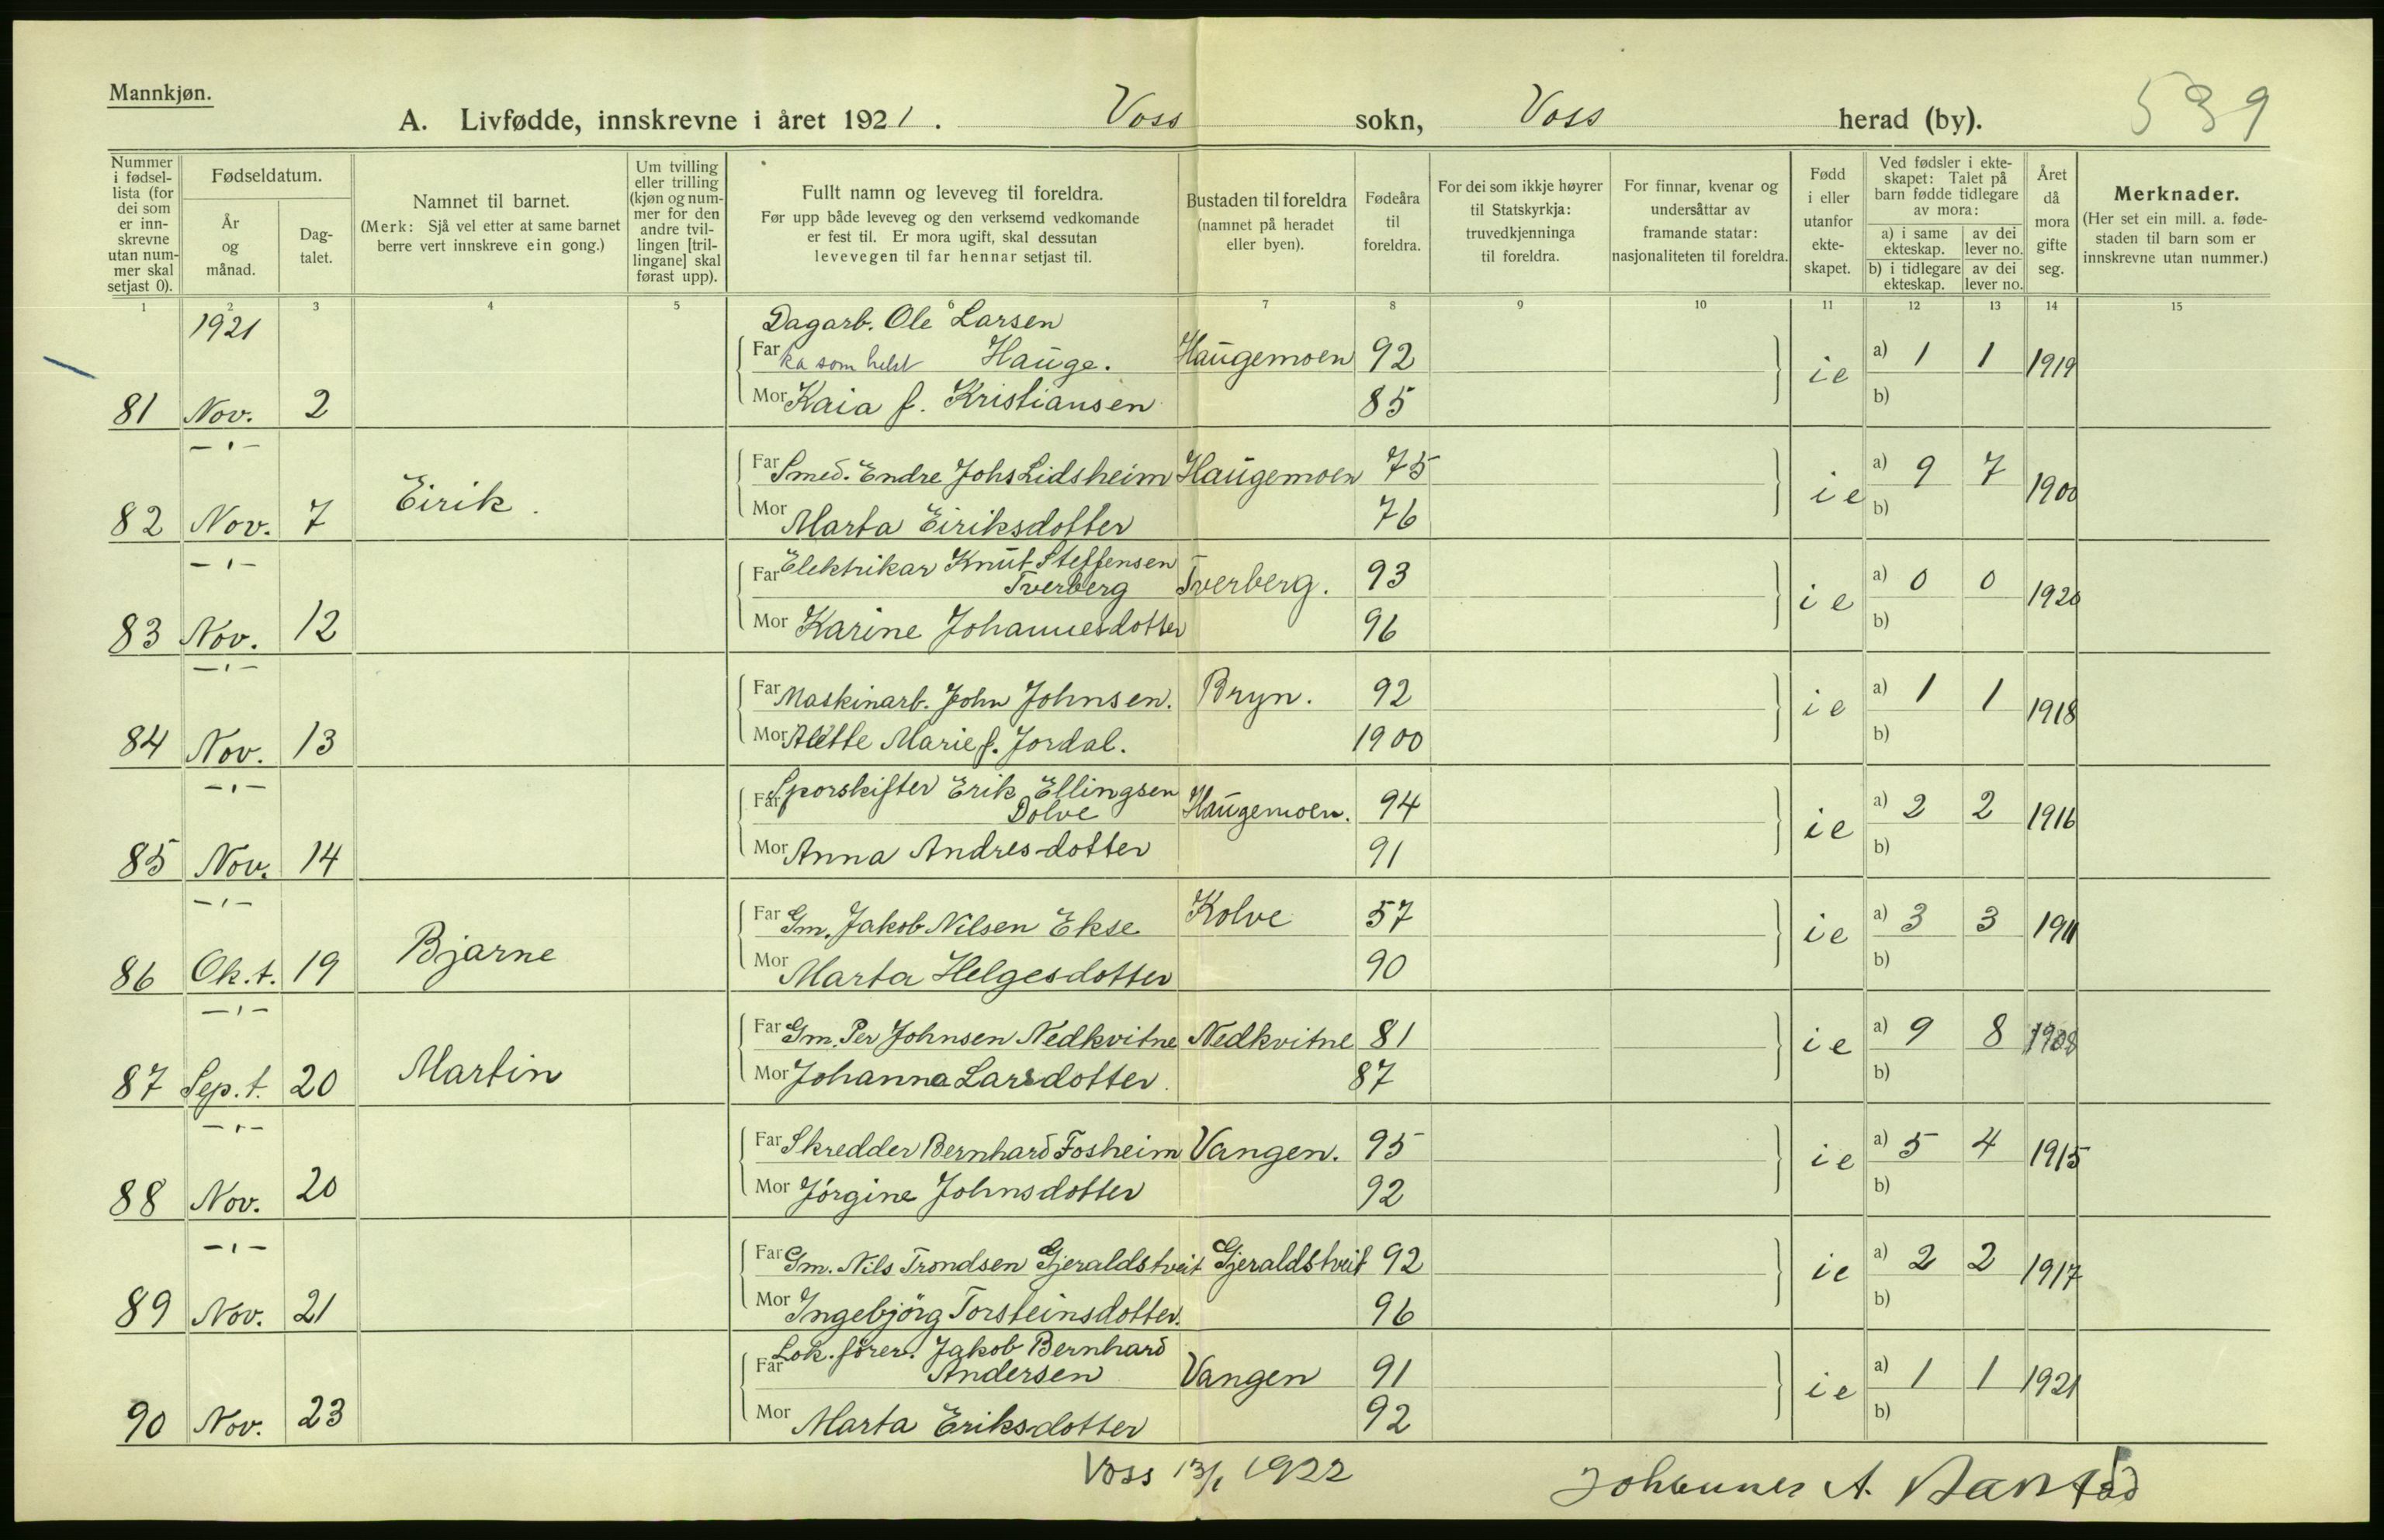 Mannkjøn.
A. Livfødde, innskrevne i året 1921. Voss sokn, Voss herad (by). 539
Nummer i fødsel-lista (for dei som er inn-skrevne utan num-mer skal setjast 0).
Fødseldatum.
År og månad.
Dag-talet.
Namnet til barnet.
(Merk: Sjå vel etter at same barnet berre vert innskreve ein gong.)
Um tvilling eller trilling (kjøn og num-mer for den andre tvil-lingen [tril-lingane] skal førast upp).
Fullt namn og leveveg til foreldra.
Før upp både leveveg og den verksemd vedkomande er fest til. Er mora ugift, skal dessutan levevegen til far hennar setjast til.
Bustaden til foreldra (namnet på heradet eller byen).
Fødeåra til foreldra.
For dei som ikkje høyrer til Statskyrkja: truvedkjenninga til foreldra.
For finnar, kvenar og undersåttar av framande statar: nasjonaliteten til foreldra.
Fødd i eller utanfor ekte-skapet.
Ved fødsler i ekte-skapet: Talet på barn fødde tidlegare av mora:
a) i same ekteskap. av dei lever no.
b) i tidlegare ekteskap. av dei lever no.
Året då mora gifte seg.
Merknader.
(Her set ein mill. a. føde-staden til barn som er innskrevne utan nummer.)
1 2 3 4 5 6 7 8 9 10 11 12 13 14 15
1921
Dagarb. Ole Larsen
Far ka som helst Hauge. Haugemoen 92 ie a) 1 1 1919
81 Nov. 2 Mor Kaia f. Kristiansen 85 b)
— " —
Far Smed. Endre Johs Lidsheim Haugemoen 75 ie a) 9 7 1900
82 Nov. 7 Eirik. Mor Marta Eiriksdotter 76 b)
— " —
Far Elektrikar Knut Steffensen
Tverberg Tverberg. 93 ie a) 0 0 1920
83 Nov. 12 Mor Karine Johannesdotter 96 b)
— " —
Far Maskinarb. John Johnsen. Bryn. 92 ie a) 1 1 1918
84 Nov. 13 Mor Marie f. Jordal. 1900 b)
— " —
Far Sporskifter Erik Ellingsen
Dolve Haugemoen. 94 ie a) 2 2 1916
85 Nov. 14 Mor Anna Andres-dotter 91 b)
— " —
Far Gm. Jakob Nilsen Ekse Kolve 57 ie a) 3 3 1911
86 Ok.t. 19 Bjarne Mor Marta Helgesdotter 90 b)
— " —
Far Gm. Per Johnsen Nedkvitne Nedkvitne 81 ie a) 9 8
87 Sep.t. 20 Martin Mor Johanna Larsdotter. 87 b)
— " —
Far Skredder Bernhard Fosheim Vangen. 95 ie a) 5 4 1915
88 Nov. 20 Mor Jörgine Johnsdotter 92 b)
— " —
Far Gm. Nils Trondsen Gjeraldstveit Gjeraldstveit 92 ie a) 2 2 1917
89 Nov. 21 Mor Ingebjörg Torsteinsdotter. 96 b)
Far Lok. förer. Jakob Bernhard
Andersen Vangen 91 ie a) 1 1 1921
90 Nov. 23 Mor Marta Eriksdotter 92 b)
Voss 13/1 1922 Johannes A.